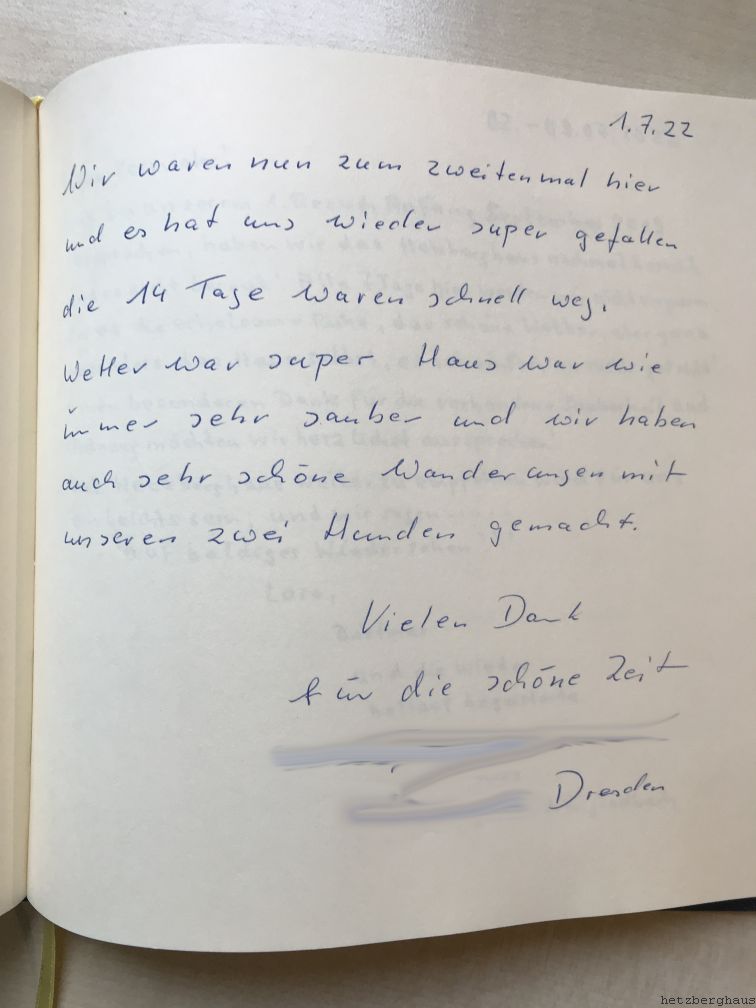 1.7.22
Wir waren nun zum zweitenmal hier
und es hat uns wieder super gefallen
die 14 Tage waren schnell weg.
Wetter war super Haus war wie
immer sehr sauber und wir haben
auch sehr schöne Wanderungen mit
unseren zwei Hunden gemacht.
Vielen Dank
für die schöne Zeit
Dresden
hetzberghaus